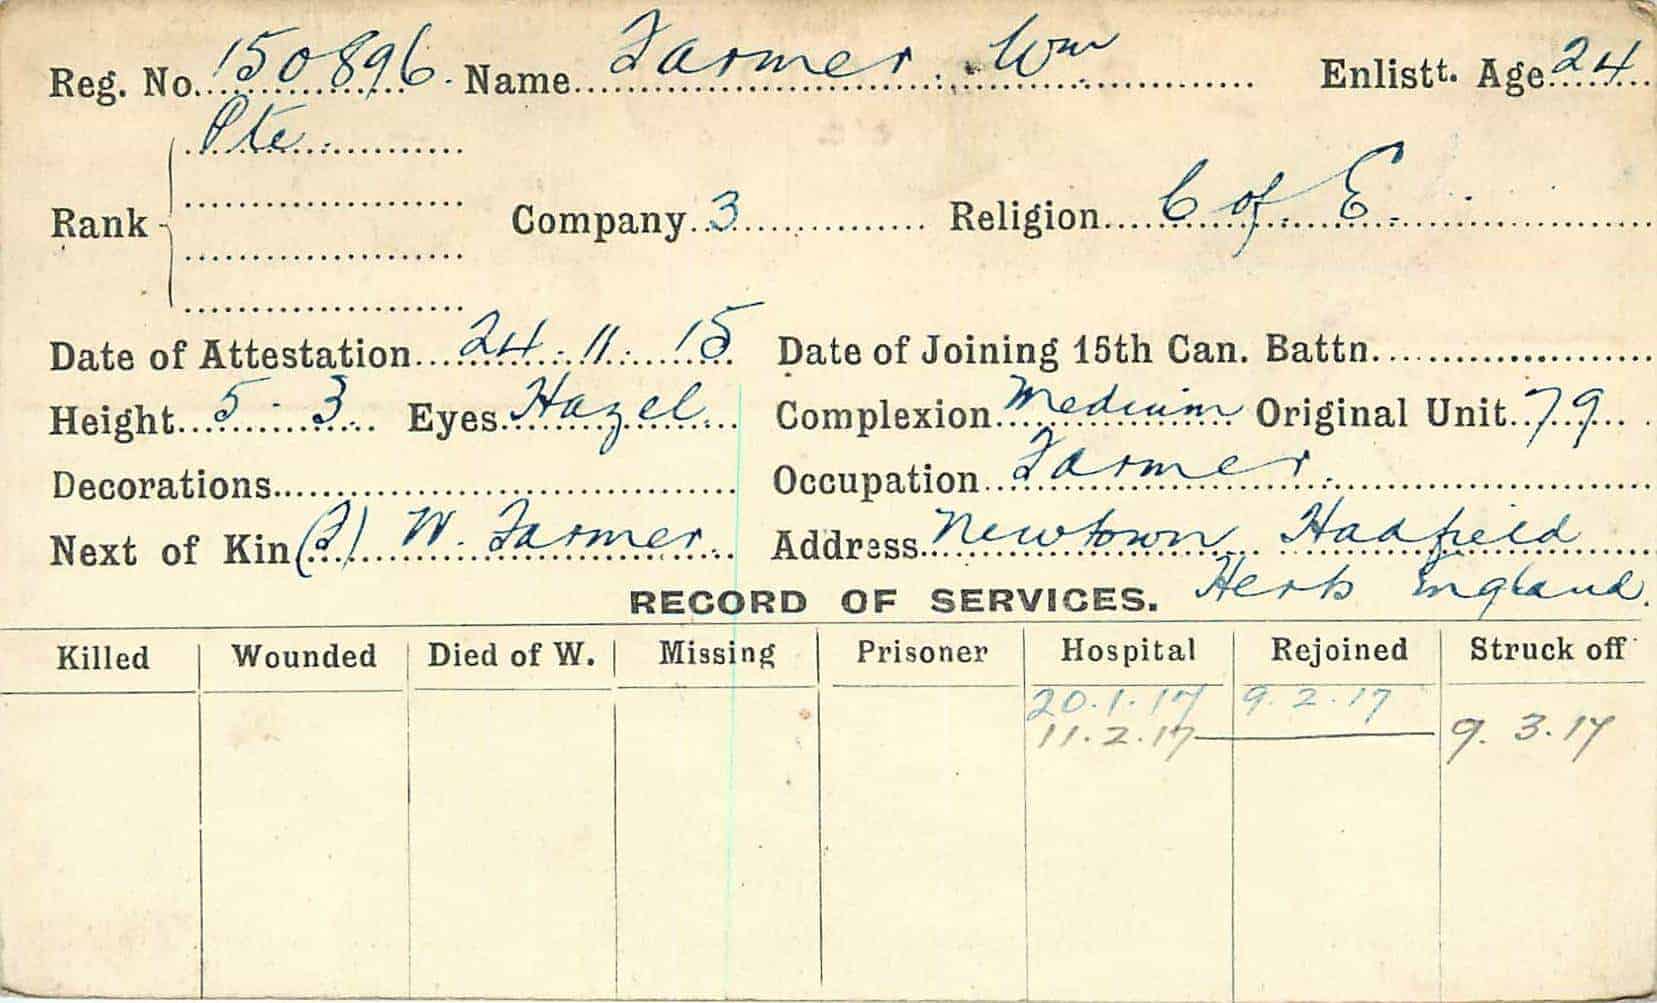 Reg. No. 150896. Name Farmer Wm Enlistt. Age 24
Pte
Rank Company 3 Religion C of E
Date of Attestation 24.11.15 Date of Joining 15th Can. Battn.
Height 5.3 Eyes Hazel Complexion Medium Original Unit 79
Decorations Occupation Farmer.
Next of Kin (F) W. Farmer Address Newtown Hadfield
Herts England.
RECORD OF SERVICES.
Killed Wounded Died of W. Missing Prisoner Hospital Rejoined Struck off
20.1.17 9.2.17
11.2.17 9.3.17